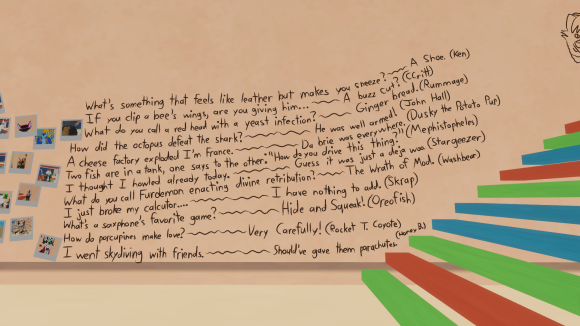 What's something that feels like leather but makes you sneeze? A Shoe. (Ken)
If you clip a bee's wings, are you giving him... A buzz cut? (CCritt)
What do you call a red head with a yeast infection? Ginger bread. (Rummage)
How did the octopus defeat the shark? He was well armed. (John Hall)
A cheese factory exploded I'm France. Da brie was everywhere. (Dusky the Potato Pup)
Two fish are in a tank, one says to the other. "How do you drive this thing?" (Mephistopheles)
I thought I howled already today. Guess it was just a deja woo (Stargeezer)
What do you call Furdemon enacting divine retribution? The Wrath of Mod. (Washbear)
I just broke my calculator.... I have nothing to add. (Skrap)
What's a saxphone's favorite game? Hide and Squeak! (Oreofish)
How do porcupines make love? Very Carefully! (Rocket T. Coyote)
I went skydiving with friends. Should've gave them parachutes